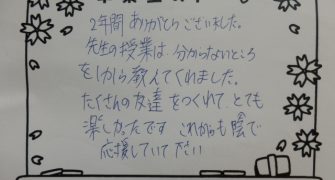 2年間ありがとうございました。
先生の授業は分からないところ
を1から教えてくれました。
たくさんの友達をつくれて、とても
楽しかったです これからも陰で
応援していて下さい